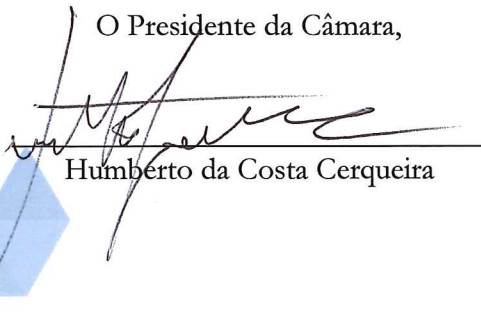 O Presidente da Câmara,
Humberto da Costa Cerqueira